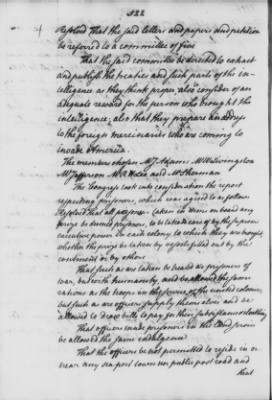 522
Resolved That the said letters and papers and petition
be referred to a committee of five
That the said committee be directed to extract
and publish the treaties and such parts of the in-
telligence as they think proper, also consider of an
adequate reward for the person who brought the
intelligence; also that they prepare an address
to the foreign mercenaries who are coming to
invade America.
The members chosen Mr J Adams Mr W Livingston
Mr Jefferson Mr R H Lee and Mr Sherman
The Congress took into consideration the report
respecting prisoners, which was agreed to as follows
Resolved That all persons taken in arms on board any
prize be deemed prisoners, to be taken care of by the supreme
executive power in each colony to which they are brought,
whether the prize be taken by vessels fitted out by the
continent or by others
That such as are taken be treated as prisoners of
war, but with humanity, and be allowed the same
rations as the troops in the service of the united colonies,
but such as are officers supply themselves and be
allowed to draw bills to pay for their subsistence & clothing
That officers made prisoners in the land service
be allowed the same indulgence
That the officers be not permitted to reside in or
near any sea port town nor public post road and
that